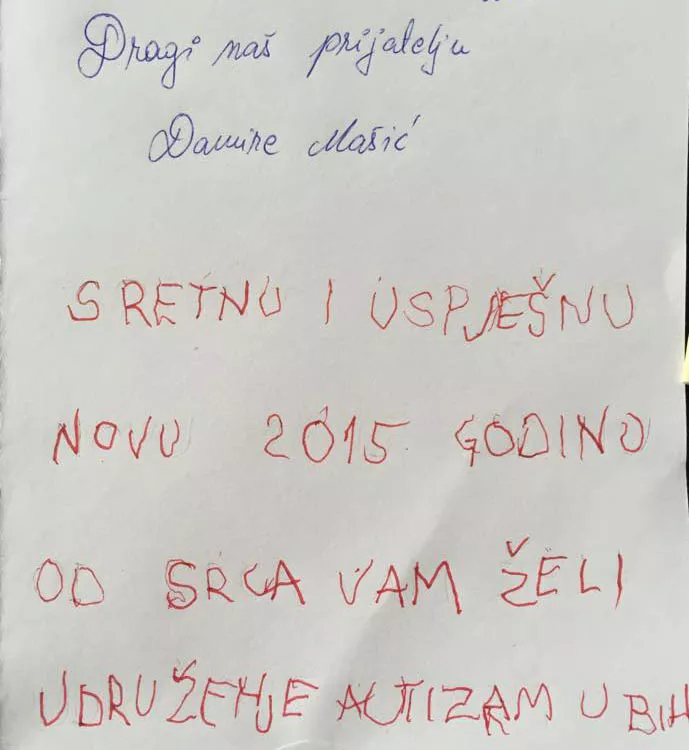 Dragi naš prijatelju
Damire Mašić
SRETNU I USPJEŠNU
NOVU 2015 GODINU
OD SRCA VAM ŽELI
UDRUŽENJE AUTIZAM U BIH